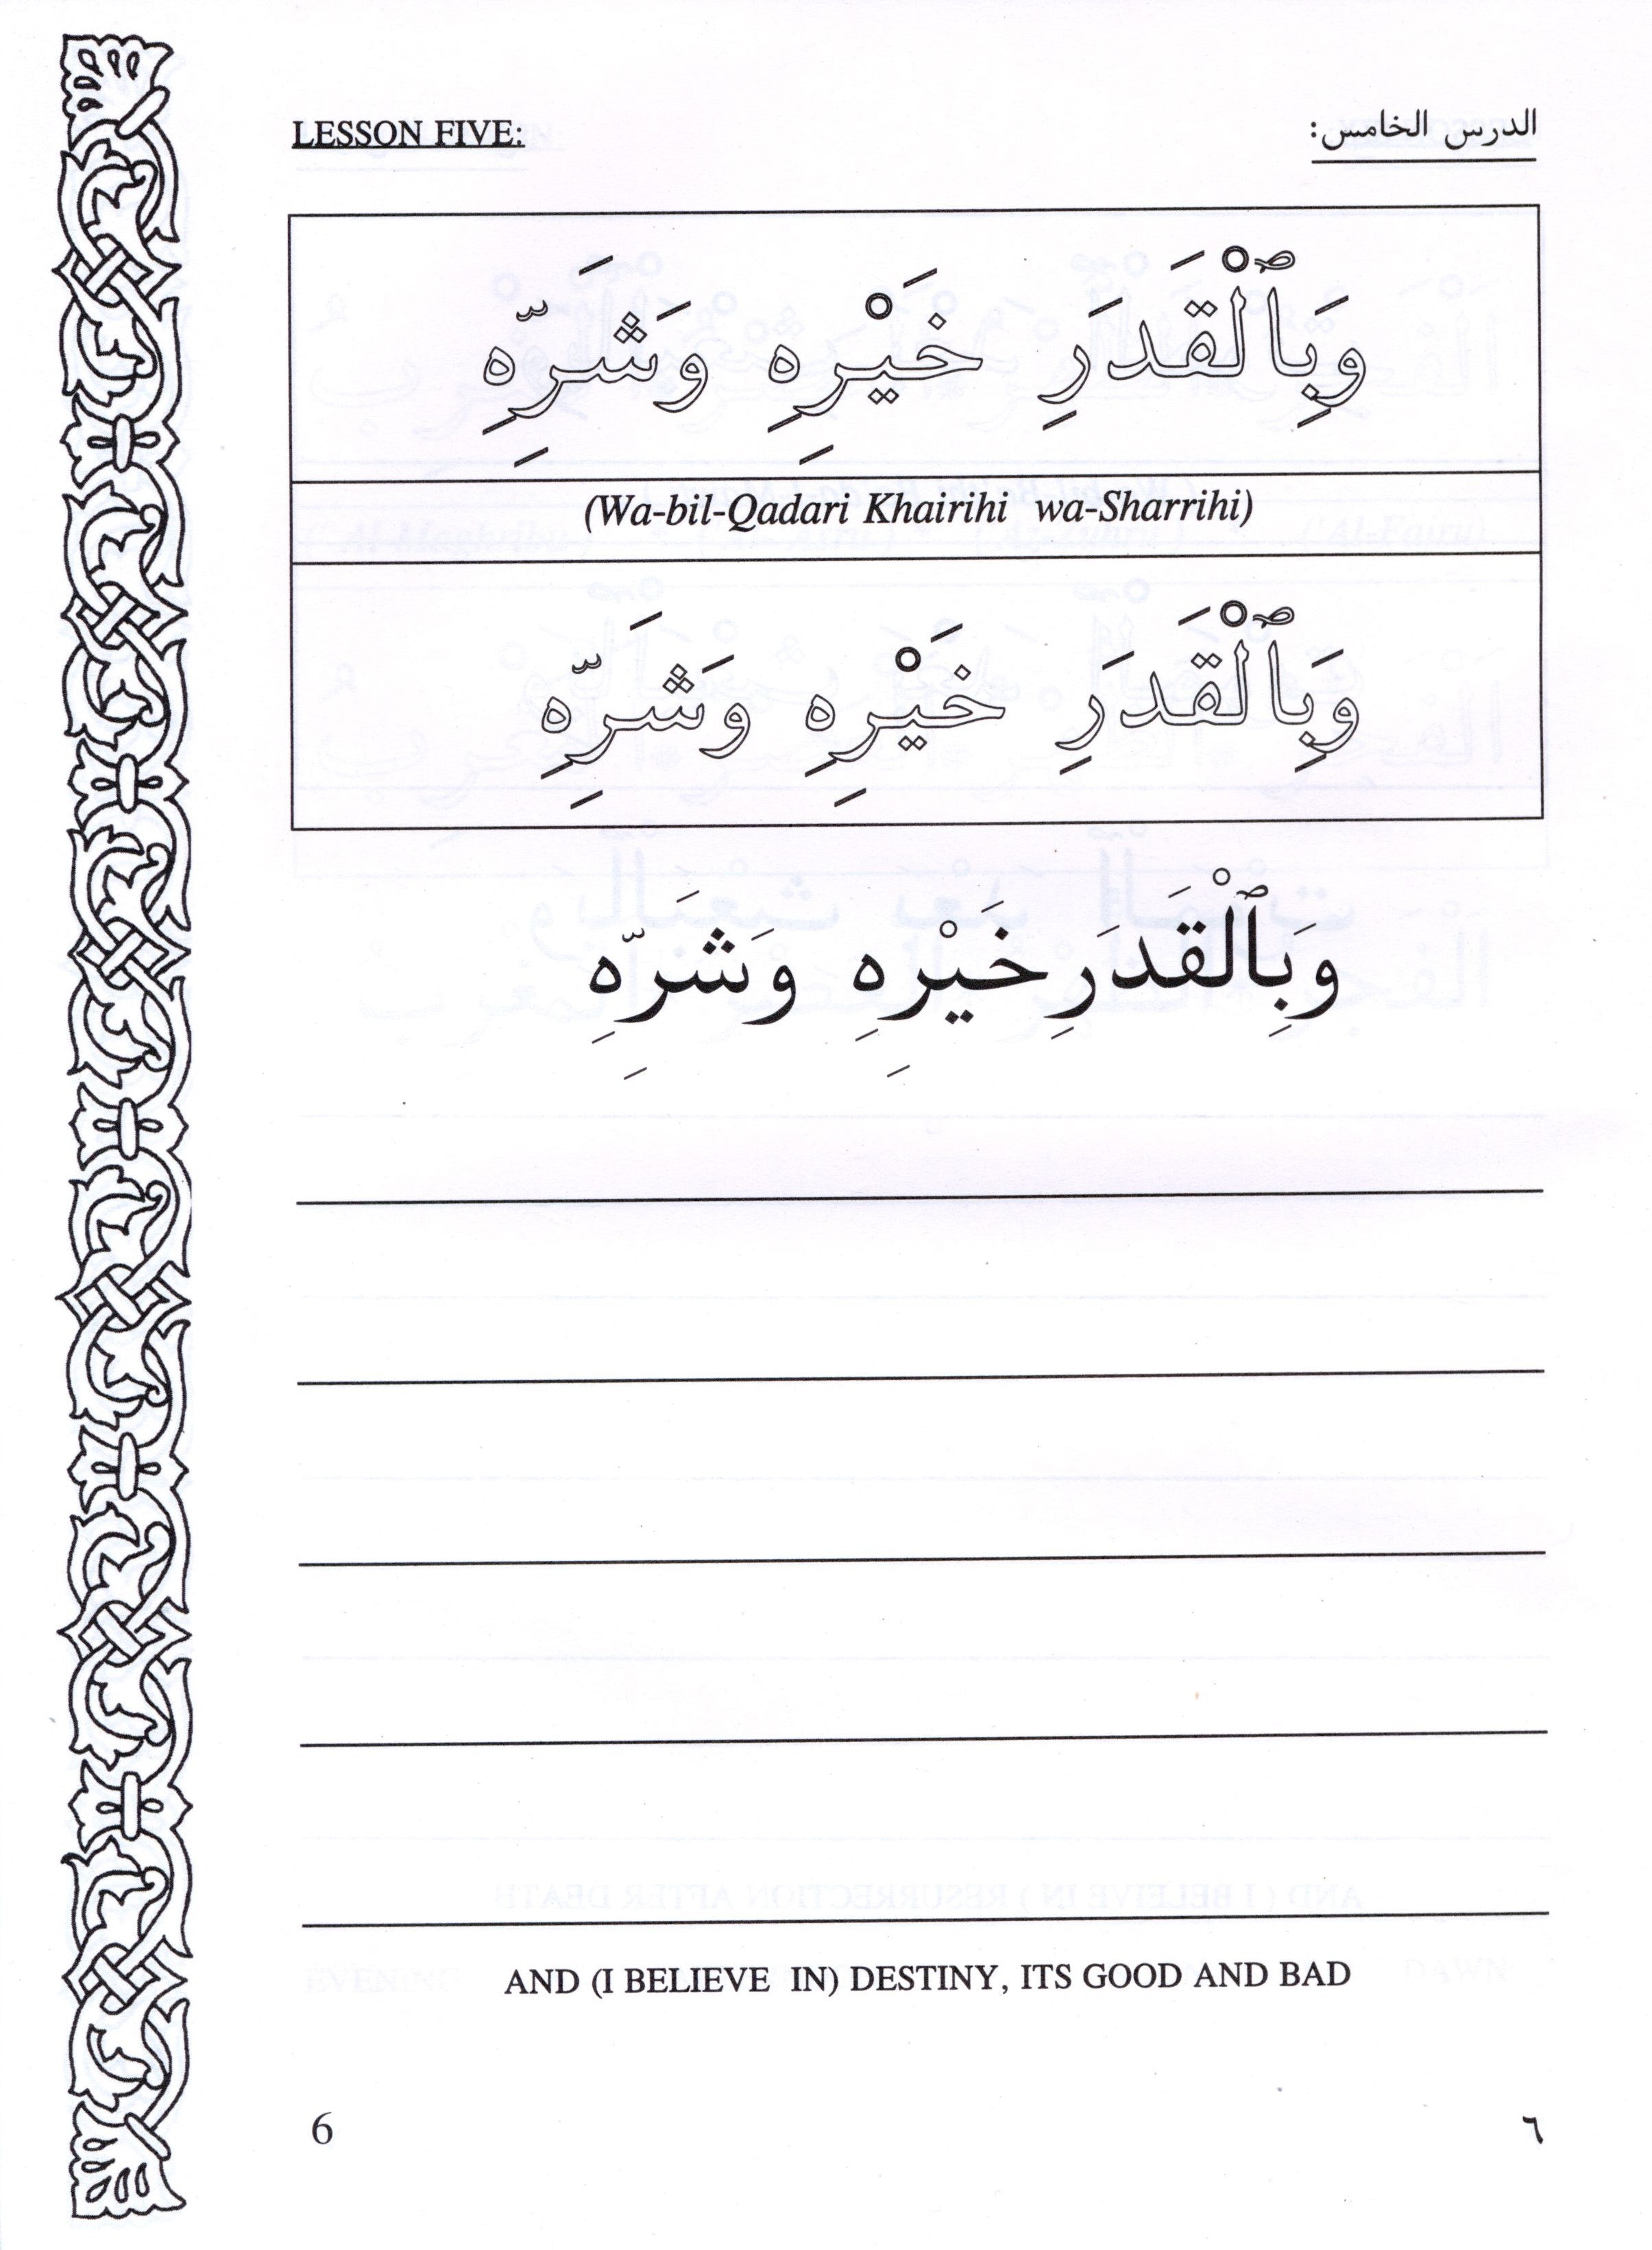 LESSON FIVE: الدرس الخامس:
وَبِٱلْقَدَرِ خَيْرِهِ وَشَرِّهِ
(Wa-bil-Qadari Khairihi wa-Sharrihi)
وَبِٱلْقَدَرِ خَيْرِهِ وَشَرِّهِ
وَبِٱلْقَدَرِ خَيْرِهِ وَشَرِّهِ
AND (I BELIEVE IN) DESTINY, ITS GOOD AND BAD
6 ٦